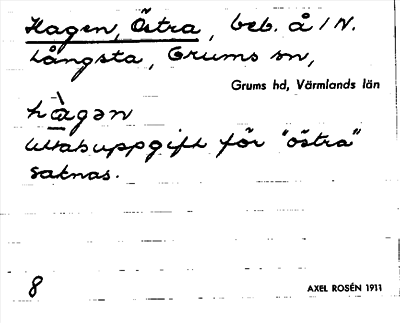 Hagen, Östra, beb. å 1 N.
Långsta, Grums sn,
Grums hd, Värmlands län
hàgən
Uttalsuppgift för "östra"
saknas.
8
AXEL ROSÉN 1911